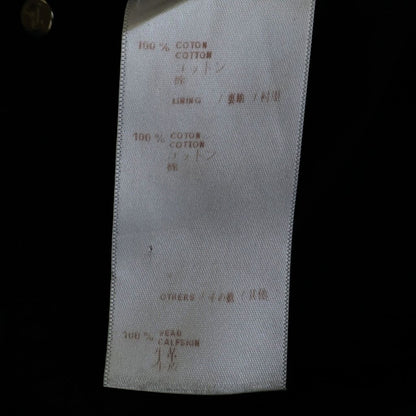 100 % COTON
COTTON
コットン
棉
LINING / 裏地 / 衬里
100 % COTON
COTTON
コットン
棉
OTHERS / その他 / 其他
100 % VEAU
CALFSKIN
牛革
牛皮